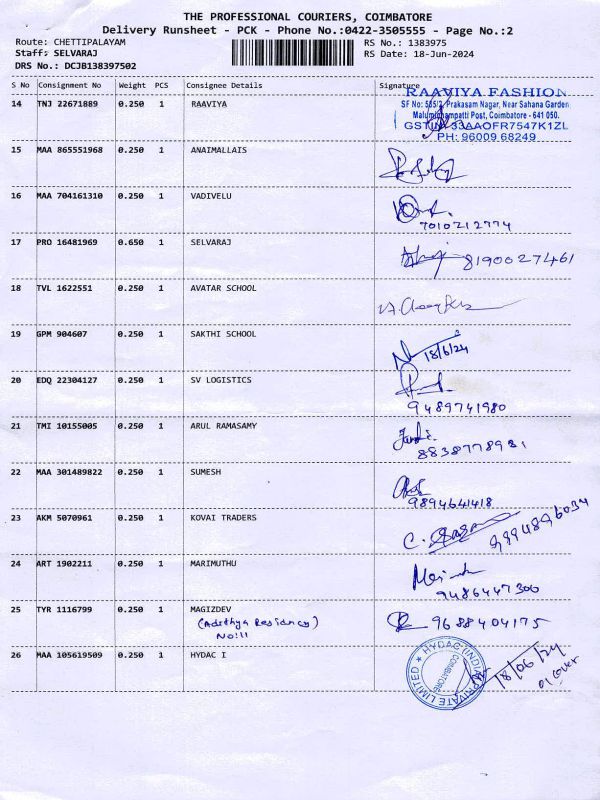 THE PROFESSIONAL COURIERS, COIMBATORE
Delivery Runsheet - PCK - Phone No.:0422-3505555 - Page No.:2
Route: CHETTIPALAYAM RS No.: 1383975
Staff: SELVARAJ RS Date: 18-Jun-2024
DRS No.: DCJB138397502
S No Consignment No Weight PCS Consignee Details Signature
14 TNJ 22671889 0.250 1 RAAVIYA
RAAVIYA FASHION
SF No: 585/2, Prakasam Nagar, Near Sahana Garden
Malumichampatti Post, Coimbatore - 641 050.
GSTIN: 33AAOFR7547K1ZL
PH: 96009 68249
15 MAA 865551968 0.250 1 ANAIMALLAIS
16 MAA 704161310 0.250 1 VADIVELU
7010212774
17 PRO 16481969 0.650 1 SELVARAJ 8190027461
18 TVL 1622551 0.250 1 AVATAR SCHOOL
19 GPM 904607 0.250 1 SAKTHI SCHOOL
18/6/24
20 EDQ 22304127 0.250 1 SV LOGISTICS
9489741980
21 TMI 10155005 0.250 1 ARUL RAMASAMY
8838778981
22 MAA 301489822 0.250 1 SUMESH
9894641418
23 AKM 5070961 0.250 1 KOVAI TRADERS
9994896034
24 ART 1902211 0.250 1 MARIMUTHU
9486447306
25 TYR 1116799 0.250 1 MAGIZDEV 9688404175
(Adithya Residency)
No:11
26 MAA 105619509 0.250 1 HYDAC I
HYDAC (INDIA) PRIVATE LIMITED
COIMBATORE
18/06/24
01 cover